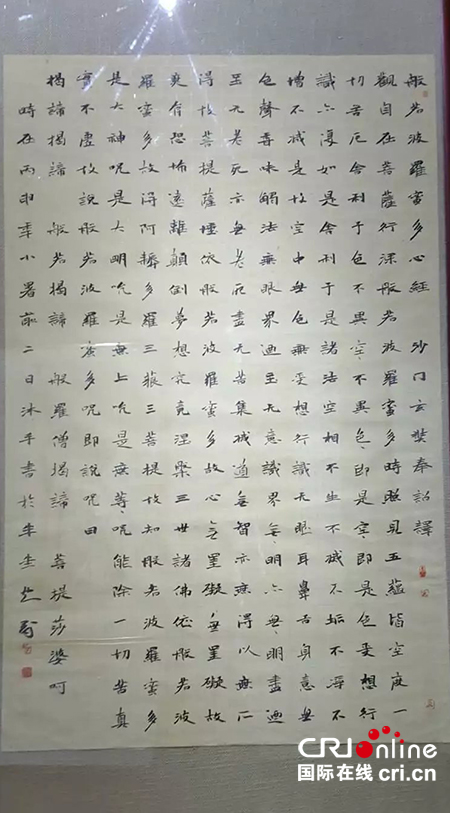 般若波羅蜜多心經 沙門玄奘奉詔譯
觀自在菩薩行深般若波羅蜜多時照見五蘊皆空度一
切苦厄舍利子色不異空、不異色、即是空即是色受想行
識亦復如是舍利子是諸法空相不生不滅不垢不淨不
增不減是故空中無色無受想行識无眼耳鼻舌身意無
色聲香味觸法無眼界迺至无意識界無、明亦無、明盡迺
至无老死亦無老死盡无苦集滅道無智亦無得以無所
得故菩提薩埵依般若波羅蜜多故心無罣礙無罣礙故
無有恐怖遠離顛倒夢想究竟涅槃三世諸佛依般若波
羅蜜多故得阿耨多羅三藐三菩提故知般若波羅蜜多
是大神呪是大明呪是無上呪是無等呪能除一切苦真
實不虛故說般若波羅蜜多呪即說呪曰
揭諦揭諦 般若揭諦 般羅僧揭諦 菩提莎婆呵
時在丙申年小暑前二日沐手書於
CRI online
国际在线 cri.cn